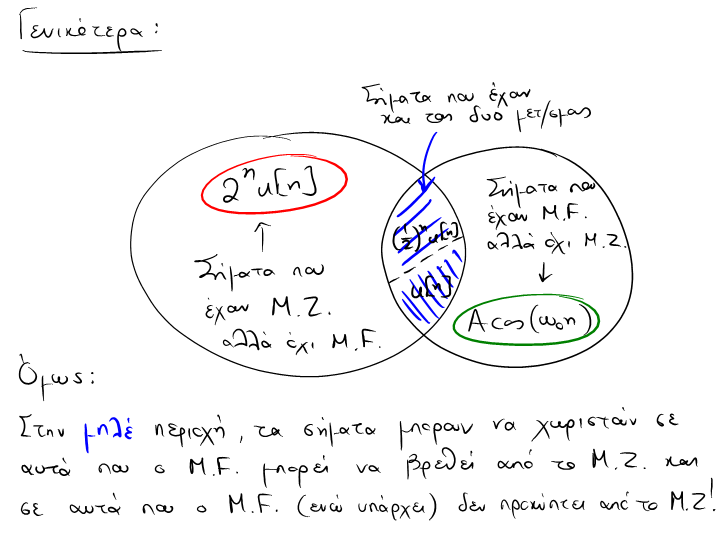 Γενικότερα:
Σήματα που έχουν
και τους δυο μετ/σμους
2ⁿu[n]
Σήματα που
έχουν Μ.Ζ.
αλλά όχι Μ.F.
(1/2)ⁿu[n]
u[n]
Σήματα που
έχουν Μ.F.
αλλά όχι Μ.Ζ.
Acos(ω₀n)
Όμως:
Στην μπλέ περιοχή, τα σήματα μπορούν να χωριστούν σε
αυτά που ο Μ.F. μπορεί να βρεθεί από το Μ.Ζ. και
σε αυτά που ο Μ.F. (ενώ υπάρχει) δεν προκύπτει από το Μ.Ζ!